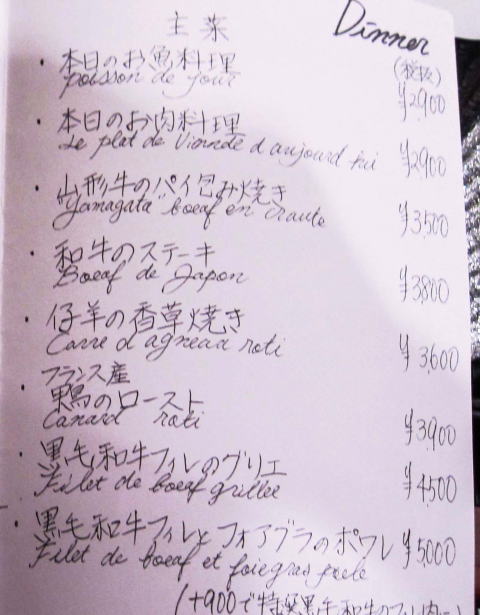 Dinner
主菜
(税抜)
・本日のお魚料理
poisson de jour ¥2,900
・本日のお肉料理
Le plat de Viande d'aujourd'hui ¥2,900
・山形牛のパイ包み焼き
"Yamagata" boeaf en Craute ¥3,500
・和牛のステーキ
Boeaf de Japon ¥3,800
・仔羊の香草焼き
Carre d'agneau roti ¥3,600
フランス産
・鴨のロースト
Canard roti ¥3,900
・黒毛和牛フィレのグリエ
Filet de boeaf grillee ¥4,500
・黒毛和牛フィレとフォアグラのポワレ ¥5,000
Filet de boeaf et foie gras poele
(+900で特選黒毛和牛のフィレ肉